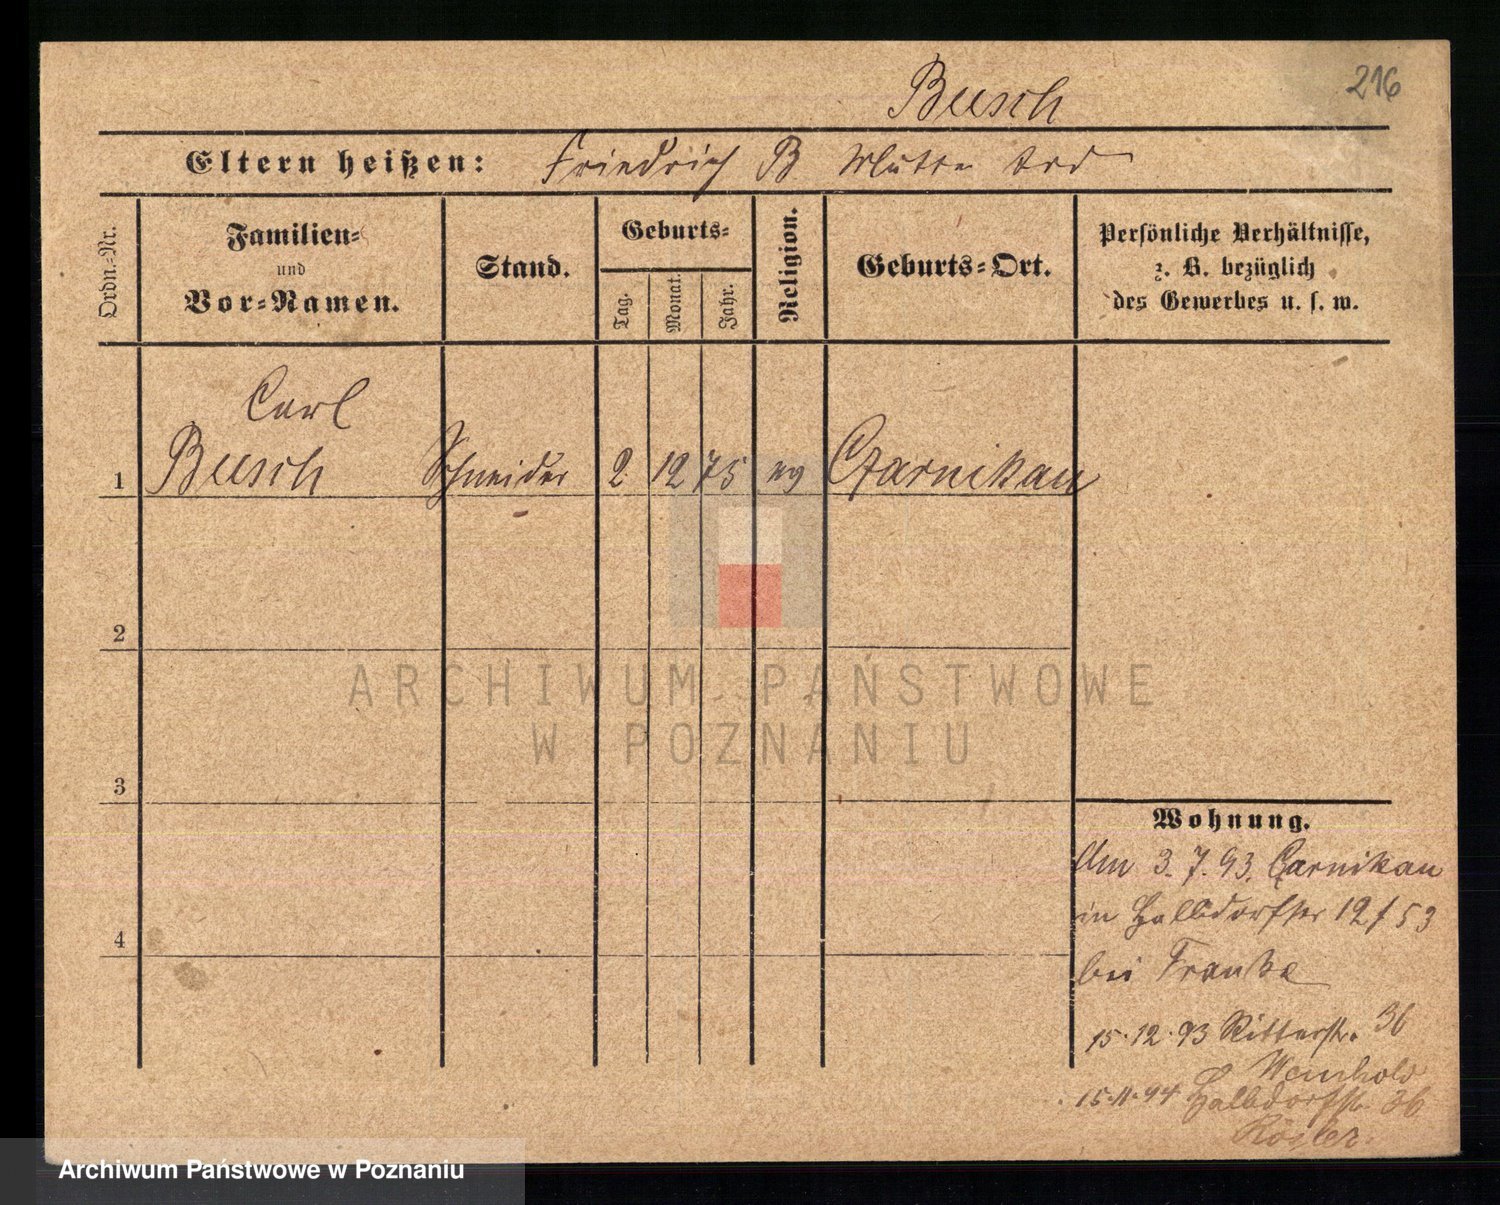 216
Busch
Eltern heißen: Friedrich B Mutter tod
Ordn.-Nr.
Familien-
und
Vor-Namen.
Stand.
Geburts-
Tag.
Monat.
Jahr.
Religion.
Geburts-Ort.
Persönliche Verhältnisse,
z. B. bezüglich
des Gewerbes u. s. w.
Carl
1 Busch Schneider 2. 12 75 ev Czarnikau
2
3
4
Wohnung.
Am 3. 7. 93. Czarnikau
in Halbdorfstr 12 / 53
bei Franke
15.12.93 Ritterstr. 36
Weinhold
15.11.94 Halbdorfstr 36
Rösler.
ARCHIWUM PAŃSTWOWE
W POZNANIU
Archiwum Państwowe w Poznaniu